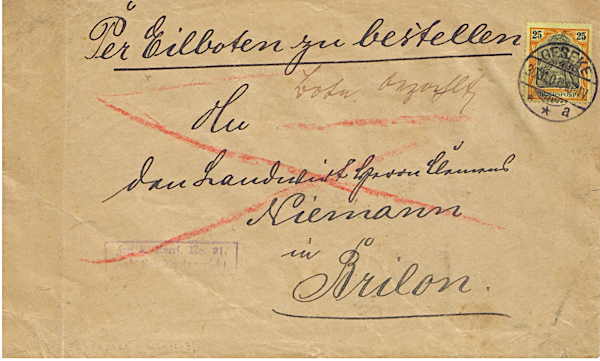 Per Eilboten zu bestellen
25
GESEKE
Bote bezahlt
An
den Landwirt Herrn Clemens
Niemann
in
Brilon.
* * a